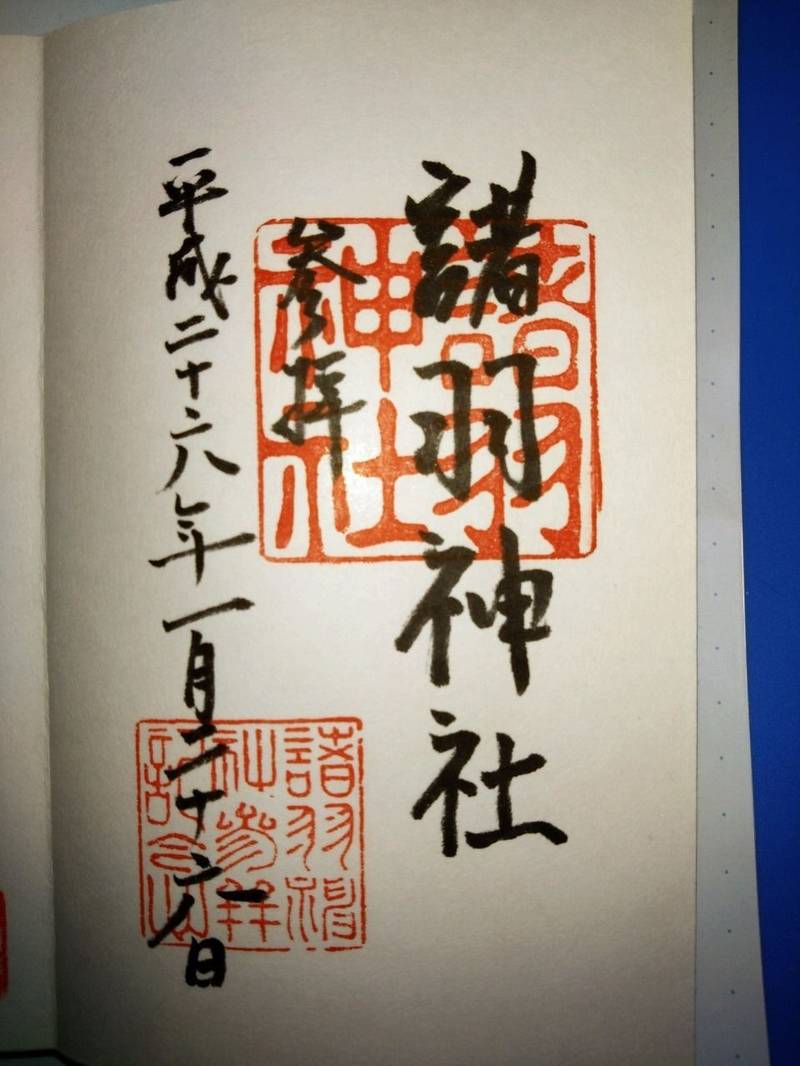 諸羽神社
諸羽
神社
参拝
平成二十六年一月二十六日
諸羽神
社参拝
記念